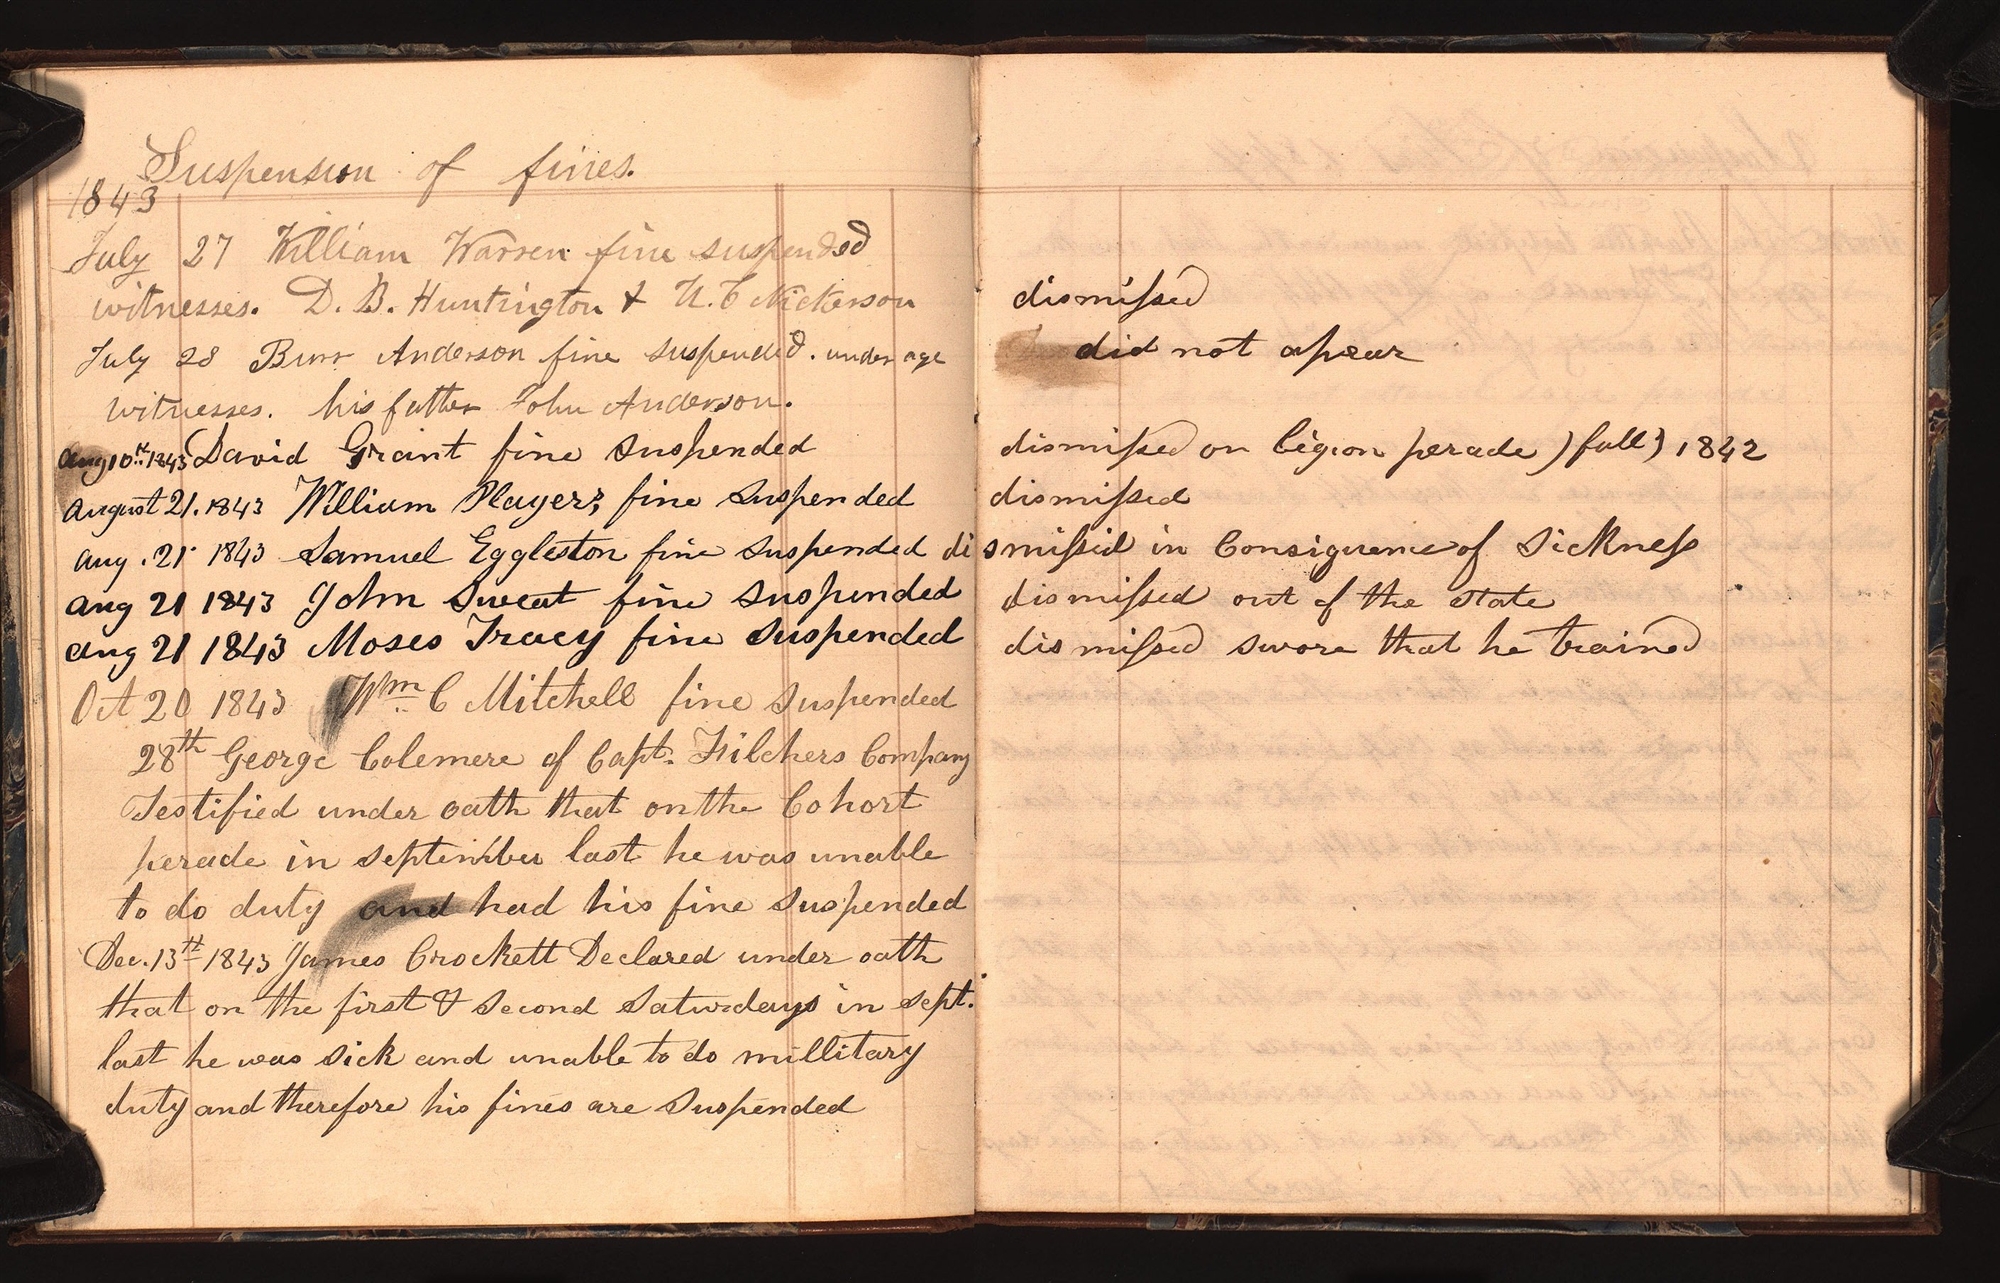 Suspension of fines.
1843
July 27 William Warren fine suspended
witnesses. D. B. Huntington & U. C Nickerson
dismissed
July 28 Burr Anderson fine suspended. under age
did not apear
witnesses. his father John Anderson.
Aug 10th 1843 David Grant fine suspended
dismissed on legion perade ) fall ) 1842
August 21. 1843 William Players fine suspended
dismissed
Aug. 21 1843 Samuel Eggleston fine suspended dismissid in Consiquence of Sickness
Aug 21 1843 John Sweat fine suspended
dismissed out of the State
Aug 21 1843 Moses Tracy fine suspended
dismissed swore that he trained
Oct 20 1843 Wm C Mitchell fine suspended
28th George Colemere of Capt. Filchers Company
Testified under oath that on the Cohort
perade in september last he was unable
to do duty and had his fine suspended
Dec. 13th 1843 James Crockett Declared under oath
that on the first & second Saturdays in sept.
last he was sick and unable to do millitary
duty and therefore his fines are suspended